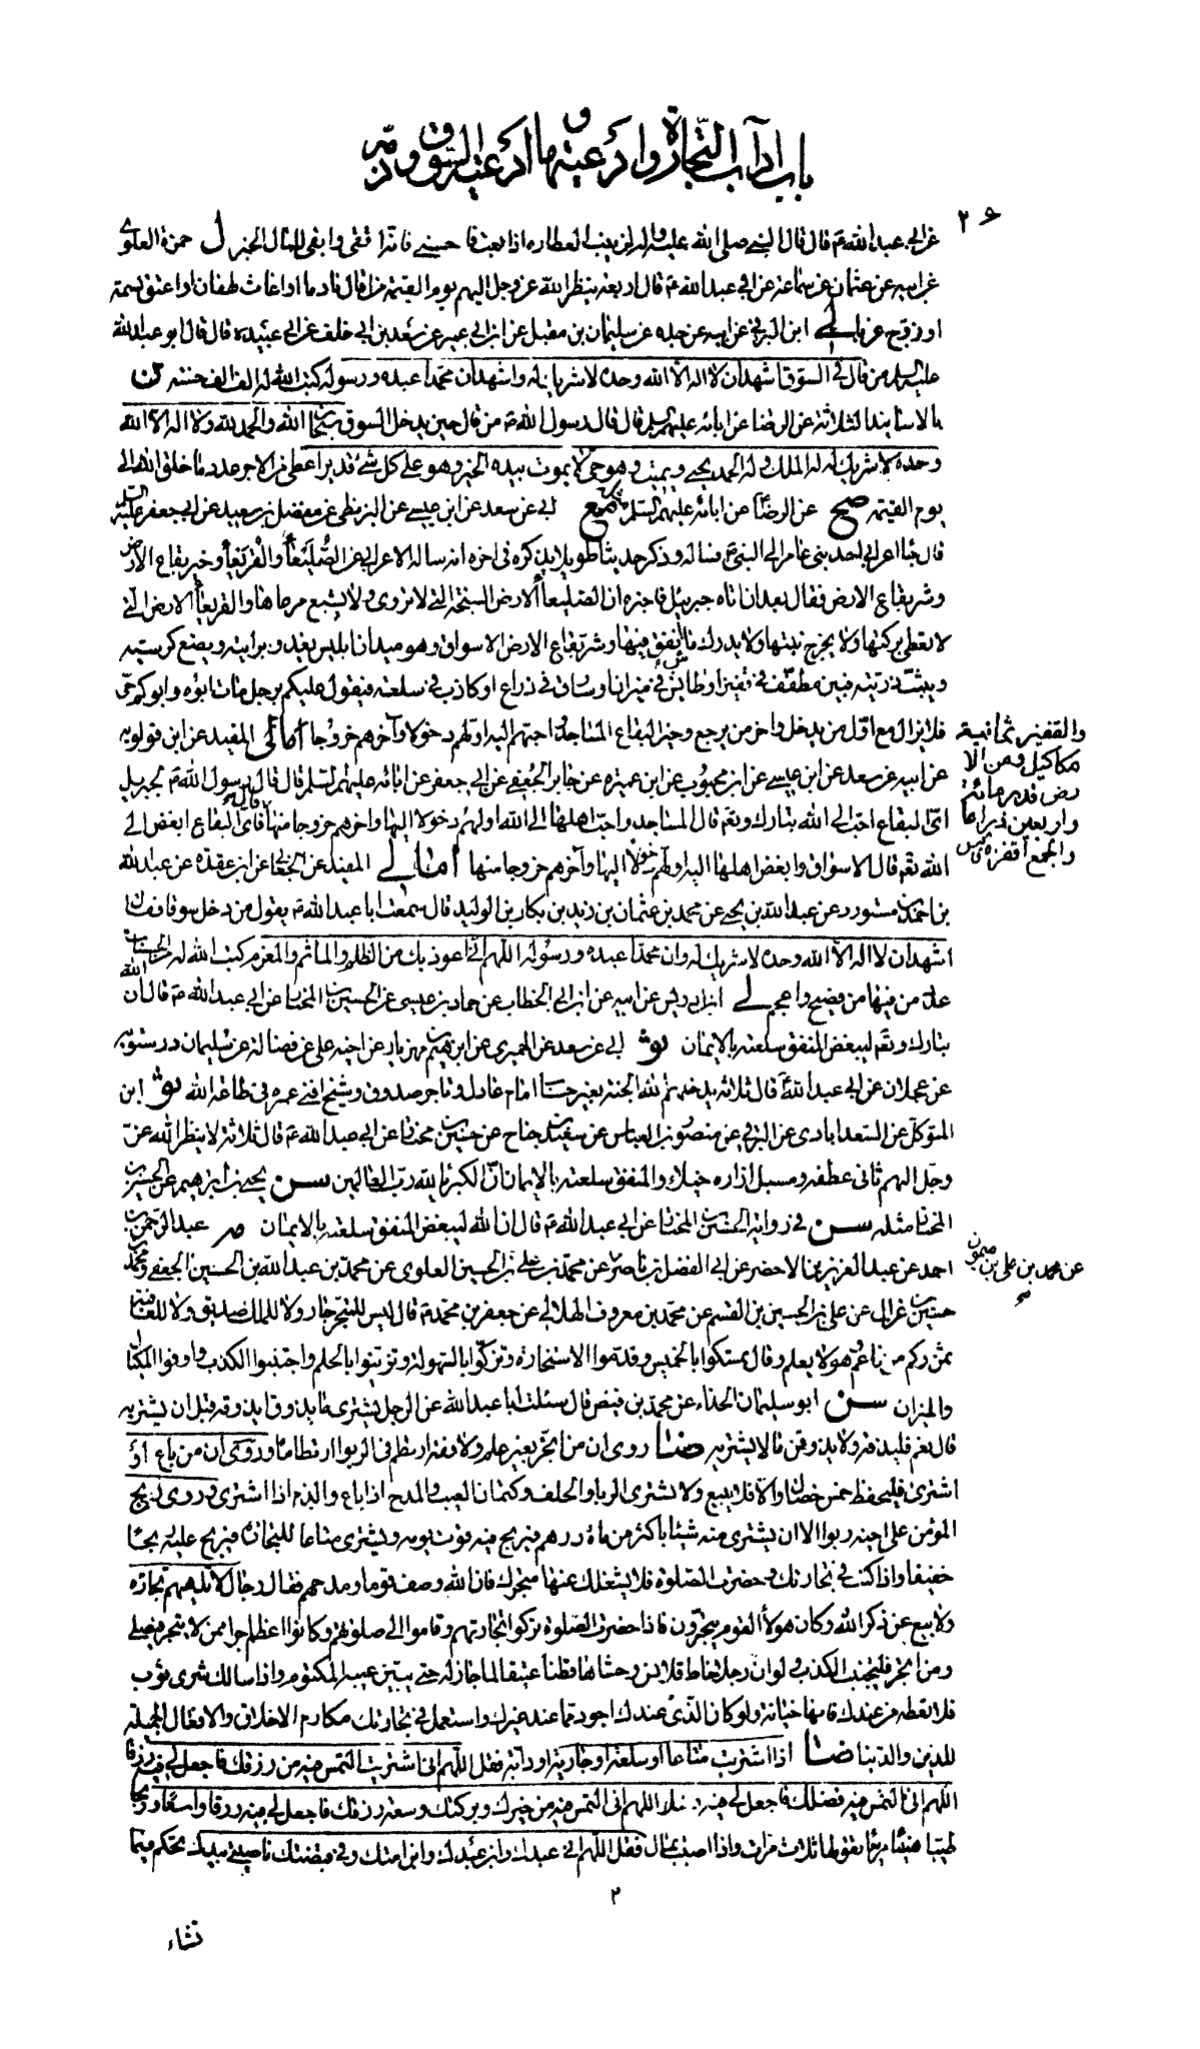 باب آداب التجارة وادعيتها وادعية السوق وذمه
عن ابي عبد الله ع قال قال النبي صلى الله عليه واله لزينب العطارة اذا بعت فاحسني فانه اتقى وابقى للمال الخبر ل حمزة العلوي
عن ابيه عن عثمان عن سماعة عن ابي عبد الله ع قال اربعة ينظر الله عز وجل اليهم يوم القيمة من اقال نادما او اغاث لهفان او اعتق نسمة
او زوج عزبا لي ابن البرقي عن ابيه عن جده عن سليمان بن مقبل عن ابن ابي عمير عن سعد بن ابي خلف عن ابي عبيدة قال قال ابو عبد الله
عليه السلم من قال في السوق اشهد ان لا اله الا الله وحده لا شريك له واشهد ان محمدا عبده ورسوله كتب الله له الف الف حسنة ن
بالاسانيد الثلاثة عن الرضا عن ابائه عليهم السلم قال قال رسول الله ص من قال حين يدخل السوق سبحان الله والحمد لله ولا اله الا الله
وحده لا شريك له له الملك وله الحمد يحيي ويميت وهو حي لا يموت بيده الخير وهو على كل شيء قدير اعطي من الاجر عدد ما خلق الله الى
يوم القيمة صح عن الرضا عن ابائه عليهم السلم مثله مع ابي عن سعد عن ابن عيسى عن البزنطي عن مفضل بن سعيد عن ابي جعفر عليه السلم
قال جاء اعرابي احد بني عامر الى النبي ص فساله وذكر حديثا طويلا يذكره في اخره انه ساله الاعرابي عن الصليعاء والقريعاء وخير بقاع الارض
وشر بقاع الارض فقال بعد ان اتاه جبرئيل فاخبره ان الصليعاء الارض السبخة التي لا تروى ولا يشبع مرعاها والقريعاء الارض التي
لا تعطي بركتها ولا يخرج نبتها ولا يدرك ما انفق فيها وشر بقاع الارض الاسواق وهو ميدان ابليس يغدو برايته ويضع كرسيه
ويبث ذريته فبين مطفف في قفيز او طايش في ميزان او سارق في ذراع او كاذب في سلعته فيقول عليكم برجل مات ابوه وابوكم حي
فلا يزال مع اول من يدخل واخر من يرجع وخير البقاع المساجد واحبهم اليه اولهم دخولا وآخرهم خروجا امالي المفيد عن ابن قولويه
عن ابيه عن سعد عن ابن عيسى عن ابن محبوب عن ابن عميرة عن جابر الجعفي عن ابي جعفر عن ابائه عليهم السلم قال قال رسول الله ص لجبريل
اي البقاع احب الى الله تبارك وتعه قال المساجد واحب اهلها الى الله اولهم دخولا اليها واخرهم خروجا منها قال فاي البقاع ابغض الى
الله تعه قال الاسواق وابغض اهلها اليه اولهم دخولا اليها وآخرهم خروجا منها امالي المفيد عن الجعابي عن ابن عقدة عن عبد الله
بن احمد بن مستورد عن عبد الله بن يحيى عن محمد بن عثمان بن زيد بن بكار بن الوليد قال سمعت ابا عبد الله ع يقول من دخل سوقا فقال
اشهد ان لا اله الا الله وحده لا شريك له وان محمدا عبده ورسوله اللهم اني اعوذ بك من الظلم والماثم والمغرم كتب الله له من الحسنات
عدد من فيها من فصيح واعجم لي ابن ادريس عن ابيه عن ابن ابي الخطاب عن حماد بن عيسى عن الحسين بن المختار عن ابي عبد الله ع قال ان الله
تبارك وتعه ليبغض المنفق سلعته بالايمان ثو ابي عن سعد عن الحميري عن ابراهيم بن مهزيار عن اخيه علي عن فضالة عن سليمان بن درستويه
عن عجلان عن ابي عبد الله ع قال ثلاثة يدخلهم الله الجنة بغير حساب امام عادل وتاجر صدوق وشيخ افنى عمره في طاعة الله ثو ابن
المتوكل عن السعد ابادي عن البرقي عن منصور بن العباس عن سعيد بن جناح عن حسين بن مختار عن ابي عبد الله ع قال ثلاثة لا ينظر الله عز
وجل اليهم ثاني عطفه ومسبل ازاره خيلاء والمنفق سلعته بالايمان ان الكبرياء لله رب العالمين سن يحيى بن ابراهيم عن الحسين بن
المختار مثله سن في رواية الحسين بن المختار عن ابي عبد الله ع قال ان الله ليبغض المنفق سلعته بالايمان عبد الرحمن بن
احمد عن عبد العزيز بن الاخضر عن ابي الفضل بن ناصر عن محمد بن علي بن الحسين العلوي عن محمد بن عبد الله بن الحسين الجعفي ومحمد
حسين بن غزال عن علي بن الحسين بن القسم عن محمد بن معروف الهلالي عن جعفر بن محمد ع قال ليس للبحر جار ولا للملك صديق ولا للعافية
ثمن وكم من ناعم وهو لا يعلم وقال تمسكوا بالخميس وقدموا الاستخارة وتبركوا بالسهولة وتزينوا بالحلم واجتنبوا الكذب واوفوا المكيال
والميزان سن ابو سليمان الحذاء عن محمد بن فيض قال سئلت ابا عبد الله عن الرجل يشتري ما يذاق ايذوقه قبل ان يشتريه
قال نعم فليذقه ولا يذوقن ما لا يشتريه ضا روي ان من اتجر بغير علم ولا فقه ارتطم في الربوا ارتطاما وروي ان من باع او
اشترى فليحفظ خمس خصال والا فلا يبيع ولا يشتري الربا والحلف وكتمان العيب والمدح اذا باع والذم اذا اشترى وروي ربح
المؤمن على اخيه ربوا الا ان يشتري منه شيئا باكثر من ماة درهم فيربح فيه قوت يومه ويشتري متاعا للتجارة فيربح عليه ربحا
خفيفا واذا كنت في تجارتك وحضرت الصلوة فلا يشغلك عنها متجرك فان الله وصف قوما ومدحهم فقال رجال لا تلهيهم تجارة
ولا بيع عن ذكر الله وكان هولاء القوم يتجرون فاذا حضرت الصلوة تركوا تجارتهم وقاموا الى صلوتهم وكانوا اعظم اجرا ممن لا يتجر فيصلي
ومن اتجر فليجتنب الكذب ولو ان رجلا خاط قلانس وحشاها قطنا عتيقا لما جاز له حتى يبين عيبه المكتوم واذا سالك شرى ثوب
فلا تعطه من عندك فانها خيانة ولو كان الذي عندك اجود مما عند غيرك واستعمل في تجارتك مكارم الاخلاق والافعال الجميلة
للدين والدنيا ضا اذا اشتريت متاعا او سلعة او جارية او دابة فقل اللهم اني اشتريت التمس فيه من رزقك فاجعل لي فيه رزقا
اللهم اني التمس فيه فضلك فاجعل لي فيه فضلا اللهم اني التمس فيه من خيرك وبركتك وسعة رزقك فاجعل لي فيه رزقا واسعا وربحا
طيبا هنيئا مريئا تقولها ثلاث مرات واذا اصبت بمال فقل اللهم اني عبدك وابن عبدك وابن امتك وفي قبضتك ناصيتي بيدك تحكم فيما
٢
تشاء
والقفيز ثمانية
مكاكيل ومن الا
رض قدر مائة
واربعين ذراعا
والجمع اقفزة
عن محمد بن علي بن ميمون
صح